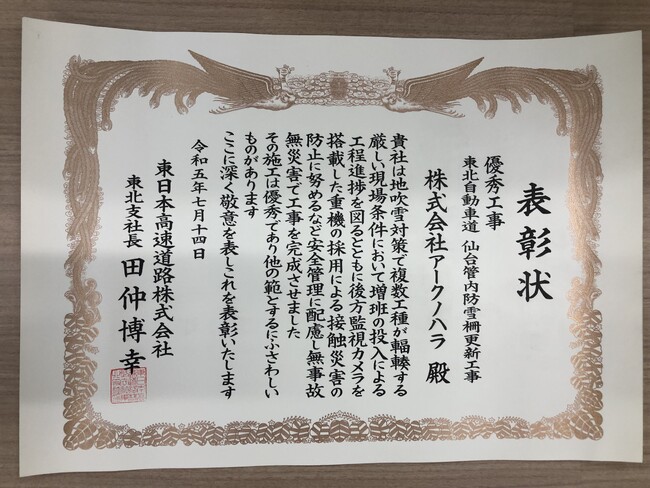 表彰状
優秀工事
東北自動車道 仙台管内防雪柵更新工事
株式会社アークノハラ 殿
貴社は地吹雪対策で複数工種が輻輳する
厳しい現場条件において増班の投入による
工程進捗を図るとともに後方監視カメラを
搭載した重機の採用による接触災害の
防止に努めるなど安全管理に配慮し無事故
無災害で工事を完成させました
その施工は優秀であり他の範とするにふさわしい
ものがあります
ここに深く敬意を表しこれを表彰いたします
令和五年七月十四日
東日本高速道路株式会社
東北支社長 田仲博幸